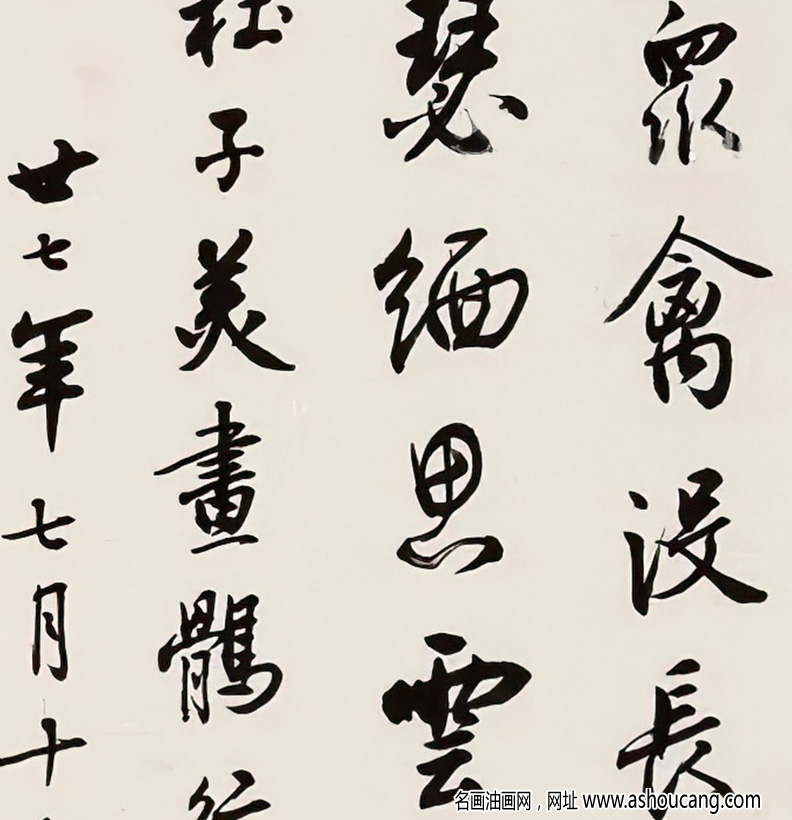 眾禽沒長
瑟緬思雲
杜子美畫鶻行
廿七年七月十
名画油画网，网址 www.ashoucang.com